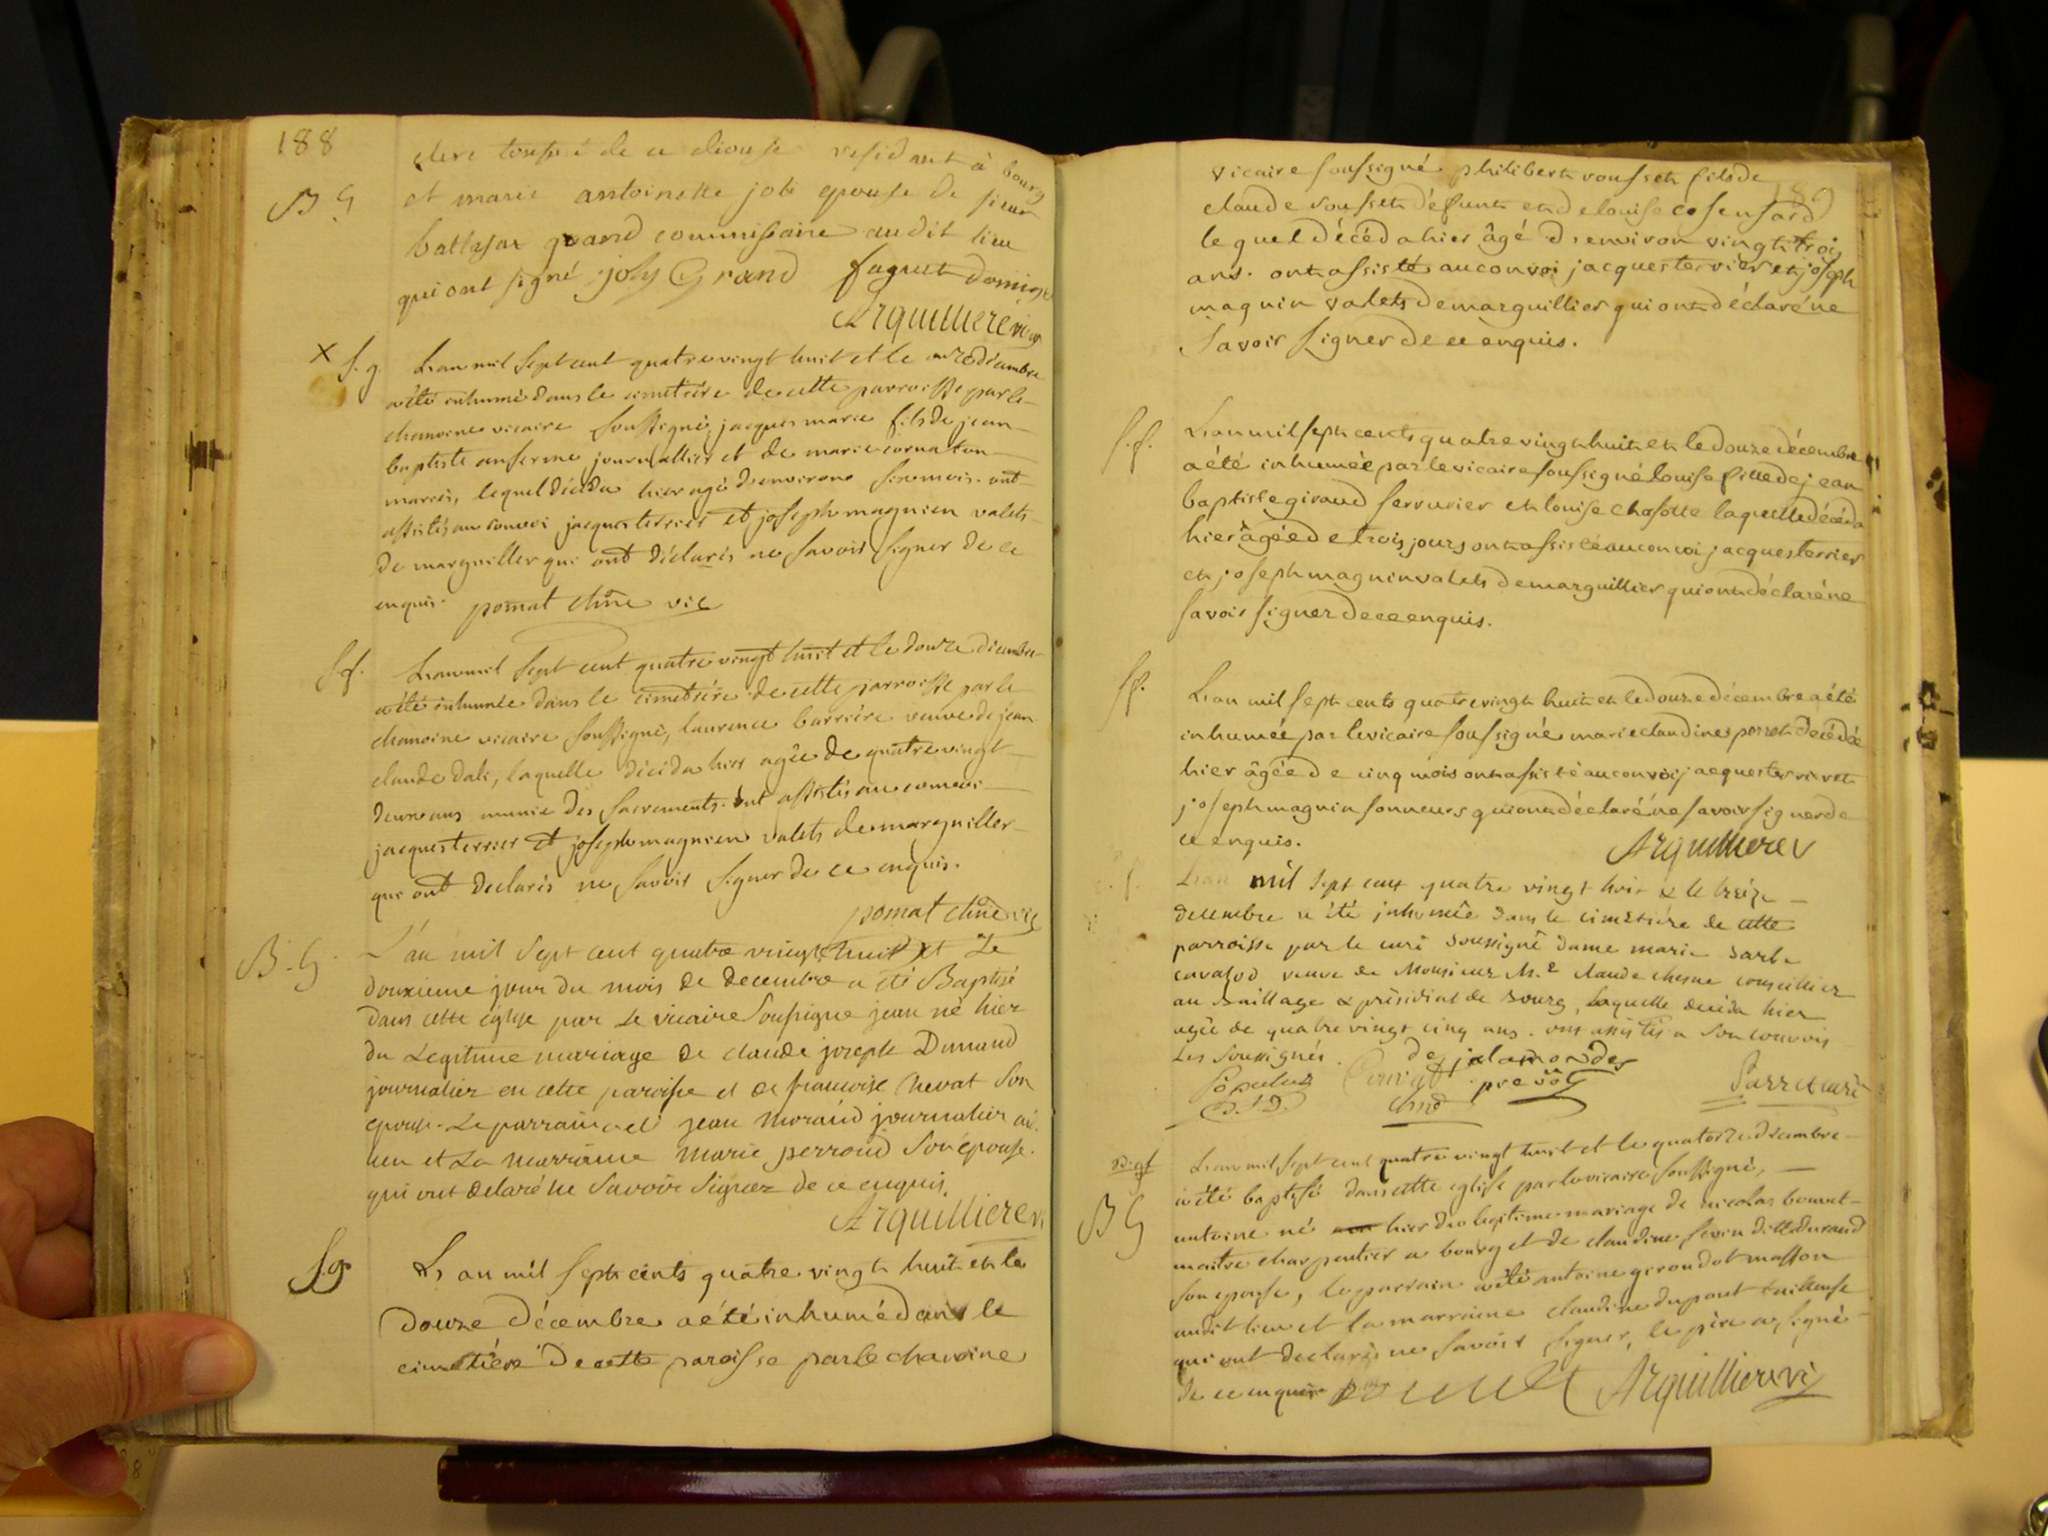 188
clerc tonsuré de ce diouse residant à bourg
B G
et marie antoinette joli epouse de sieur
baltasar grand commissaire audit lieu
qui ont signé joly Grand faguet
Arquilliere vic
X S. g
L'an mil sept cent quatre vingt huit et le onze décembre
a été inhumé dans le cimetière de cette parroisse par le
chanoine vicaire soussigné, jacques marie fils de jean
baptiste journallier et de marie cornaton
mariés, lequel décéda hier agé d'environ six mois. ont
assistés au convoi jacques terrier et joseph magnien valets
de marguiller qui ont déclarés ne savoir signer de ce
enquis. pomat chne vic
S f.
L'an mil sept cent quatre vingt huit et le douze décembre
a été inhumée dans le cimetière de cette parroisse par le
chanoine vicaire soussigné, laurence barrière veuve de jean
claude dali, laquelle décéda hier agée de quatre vingt
deux ans munie des sacrements. ont assistés au convoi
jacques terrier et joseph magnien valets de marguiller
qui ont declarés ne savoir signer de ce enquis.
pomat chne vic
B. G.
L'an mil sept cent quatre vingt huit et Le
douxieme jour du mois de decembre a été Baptisé
dans cette eglise par Le vicaire Soussigne jean né hier
du Legitime mariage de claude joseph Dunand
journalier en cette paroisse et de francoise Nevat Son
epouse. Le parrain a eté jean Morand journalier au
lieu et La Marraine Marie perroud Son épouse.
qui ont declaré ne Savoir Signer de ce enquis.
Arquilliere vi
S. g
L'an mil sept cents quatre vingt huit et le
douze décembre a été inhumé dans le
cimetière de cette paroisse par le chanoine
189
vicaire soussigné philibert rousset fils de
claude rousset défunt et de louise cosensard
le quel décéda hier âgé d'environ vingt trois
ans. ont assisté au convoi jacques terrier et joseph
magnin valets de marguillier qui ont déclaré ne
savoir signer de ce enquis.
S. f.
L'an mil sept cents quatre vingt huit et le douze décembre
a été inhumée par le vicaire soussigné louise fille de jean
baptiste giraud serrurier et louise chosotte laquelle décéda
hier âgée de trois jours ont assisté au convoi jacques terrier
et joseph magnin valets de marguillier qui ont déclaré ne
savoir signer de ce enquis.
S f.
L'an mil sept cents quatre vingt huit et le douze décembre a été
inhumée par le vicaire soussigné marie claudine perret décédée
hier âgée de cinq mois ont assisté au convoi jacques terrier et
joseph magnin sonneurs qui ont déclaré ne savoir signer de
ce enquis.
Arquilliere v
L'an mil sept cent quatre vingt huit & le treize
decembre a été inhumée dans le cimetiere de cette
parroisse par le curé soussigné dame marie barbe
cavalod veuve de Monsieur Mr. claude chesne conseiller
au Baillage & présidial de Bourg, laquelle deceda hier
agée de quatre vingt cinq ans. ont assistés a son convois
Les Soussignés. de jalamondes
Populus prevot
chne Parra curé
B G
L'an mil sept cent quatre vingt huit et le quatorze décembre
a été baptisé dans cette eglise par le vicaire soussigné,
antoine né hier du legitime mariage de nicolas bonnet
maitre charpentier a bourg et de claudine sevin dite durand
son epouse, le parrain a été antoine girondot masson
audit lieu et la marraine claudine dupont tailleuse
qui ont declarés ne savoir signer, le père a signé
de ce enquis Arquilliere vi